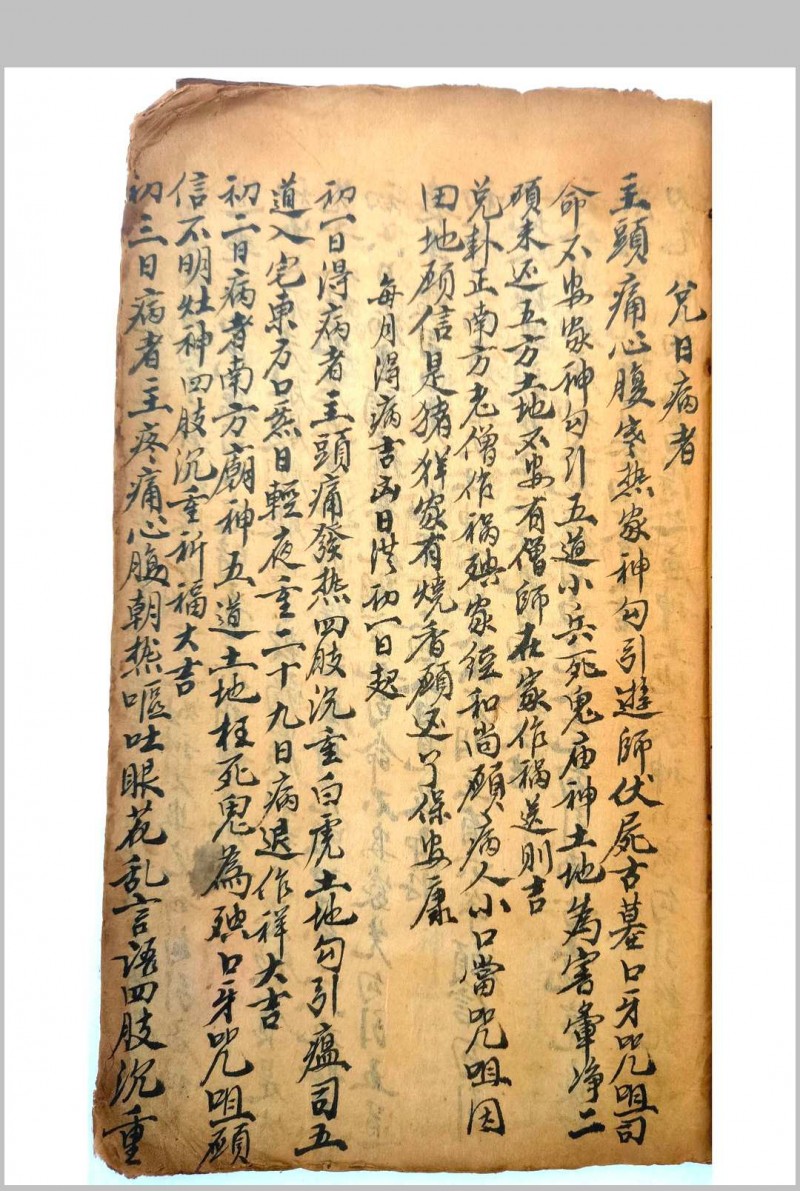 兌日病者
主頭痛心腹寒热家神勾引遊師伏屍古墓口牙咒咀司
命不安家神勾引五道小兵死鬼庙神土地為害暈净二
願未还五方土地不安有僧師在家作祸送則吉
兌卦正南方老僧作祸殃家经和尚願病人小口當咒咀因
田地願信是猪羊家有燒香願还了保安康
每月得病吉凶日洪初一日起
初一日得病者主頭痛發热四肢沉重白虎土地勾引瘟司五
道入宅東方口惹日輕夜重二十九日病退作祥大吉
初二日病者南方廟神五道土地枉死鬼為殃口牙咒咀願
信不明灶神四肢沉重祈福大吉
初三日病者主疼痛心腹朝热嘔吐眼花乱言语四肢沉重